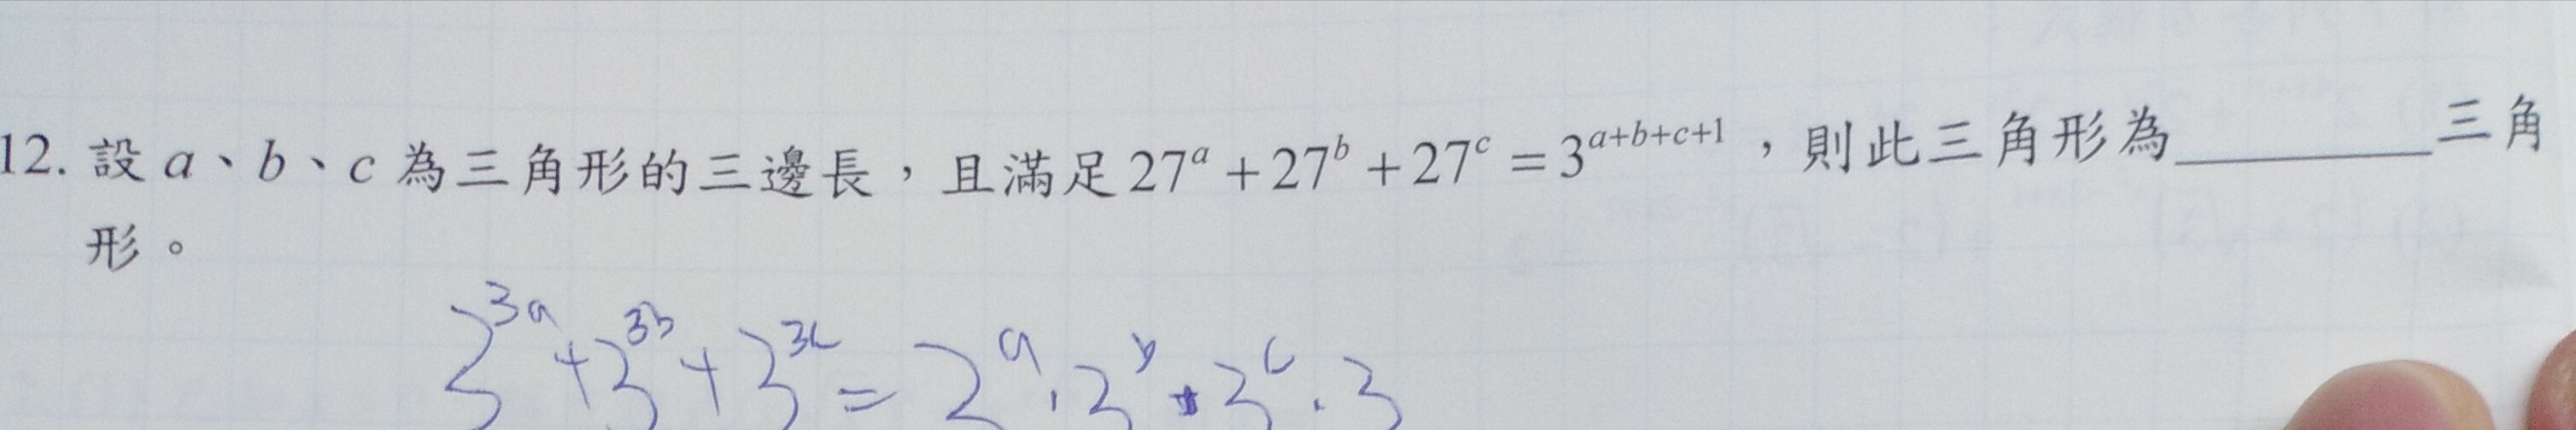 12. 設 a、b、c 為三角形的三邊長，且滿足 27^a + 27^b + 27^c = 3^{a+b+c+1}，則此三角形為________三角
形。
3^{3a} + 3^{3b} + 3^{3c} = 3^a · 3^b · 3^c · 3